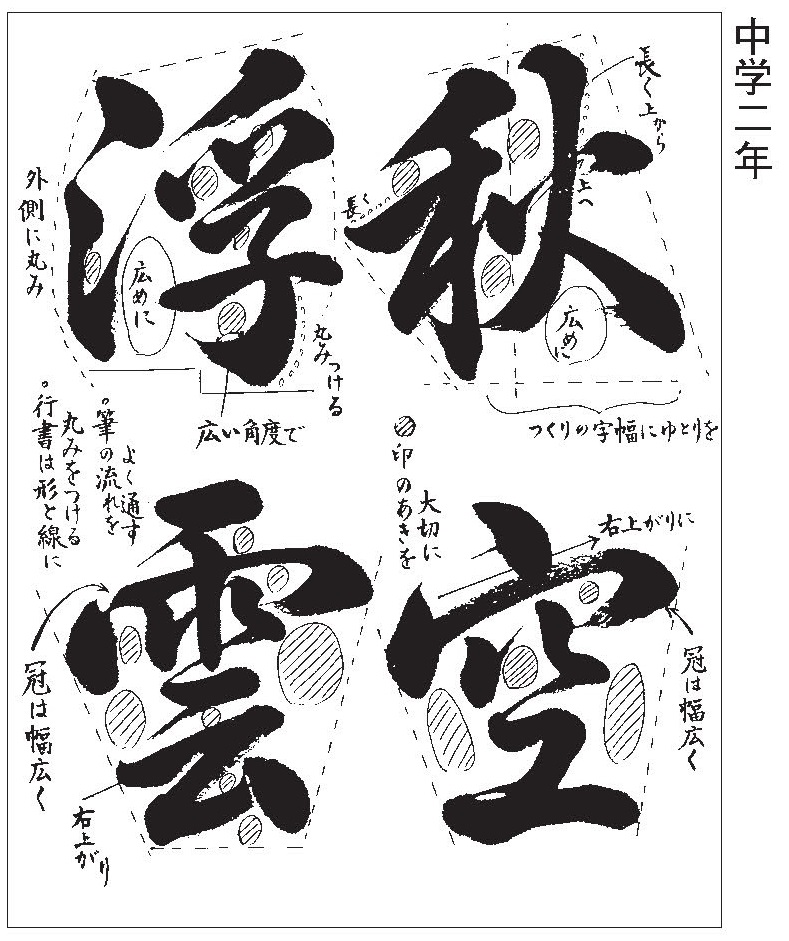 中学二年
秋
空
浮
雲
長く上から
上へ
長く
広めに
つくりの字幅にゆとりを
右上がりに
冠は幅広く
印のあきを
大切に
外側に丸み
広めに
丸みつける
広い角度で
。筆の流れを
よく通す
。行書は形と線に
丸みをつける
冠は幅広く
右上がり